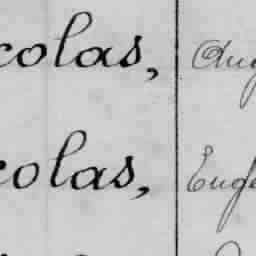 colas, Aug
colas, Euge